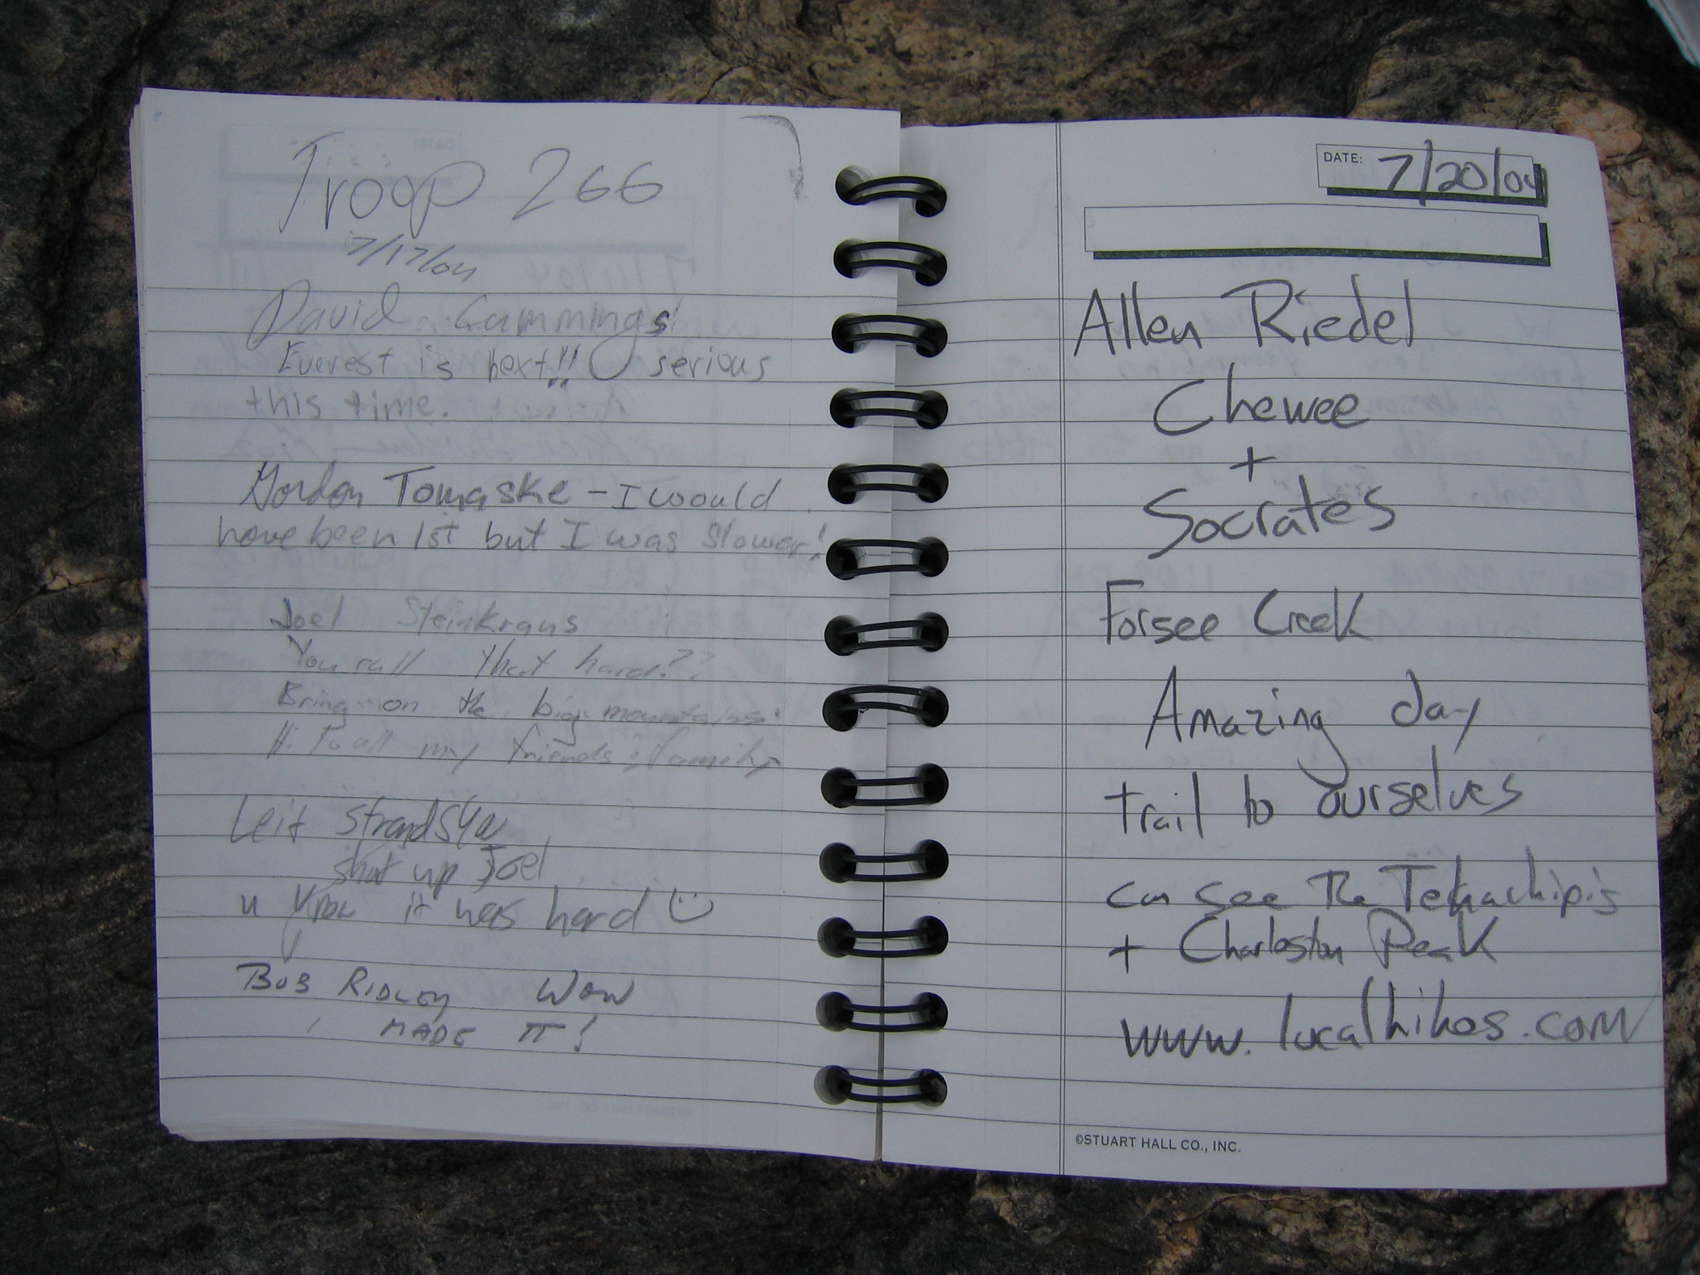 Troop 266
7/17/04
David Cummings
Everest is next!! serious
this time.
Gordon Tomaske - I would
have been 1st but I was slower!
Joel Steinkraus
You call that hard??
Bring on the big mountains!
Hi to all my friends & family
Leif
shut up Joel
u know it was hard
BOB RIDLEY WOW
I MADE IT!
DATE: 7/20/04
Allen Riedel
Chewee
+
Socrates
Forsee Creek
Amazing day
trail to ourselves
can see The Tehachipi's
+ Charleston Peak
www.localhikes.com
©STUART HALL CO., INC.